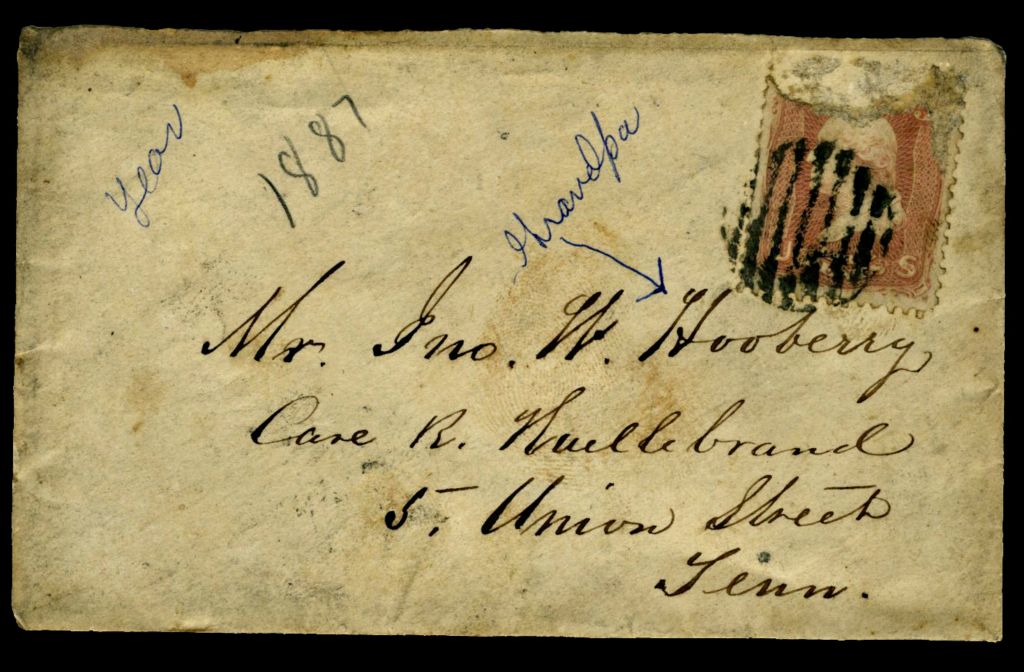 Year
1887
Grandpa
Mr. Jno. W. Hooberry
Care R. Huellebrand
5, Union Street
Tenn.